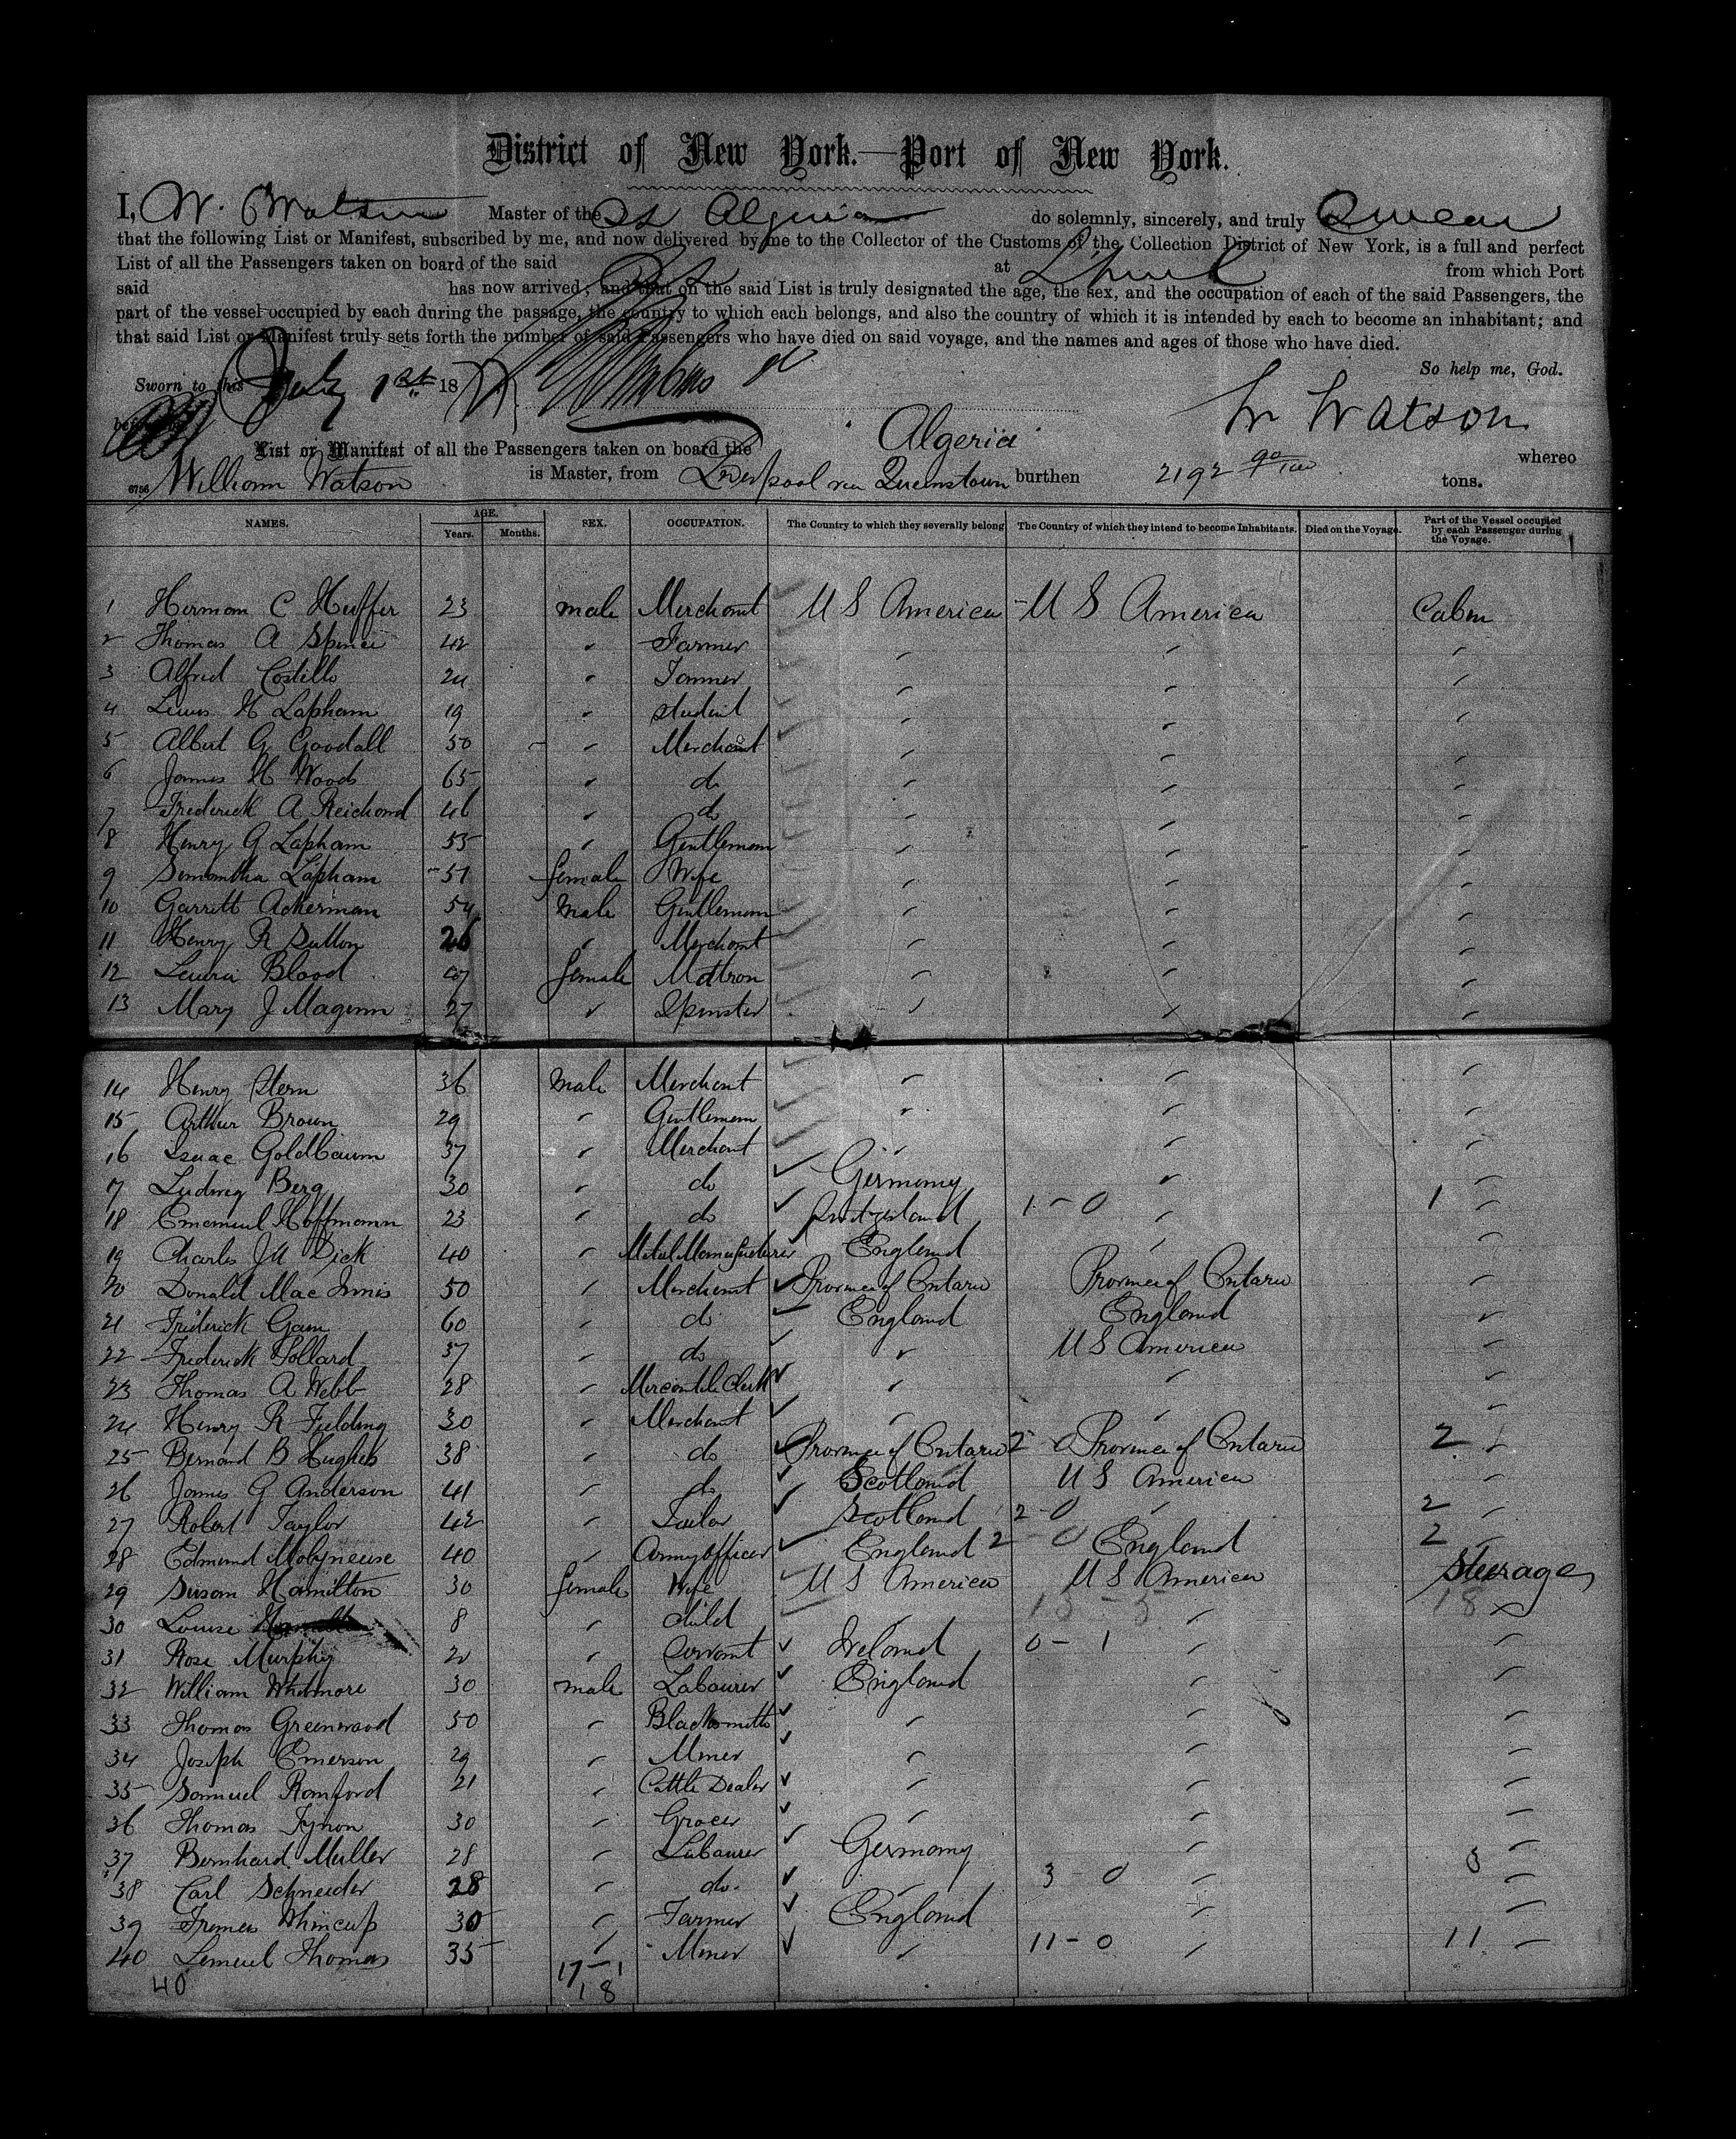 District of New York.—Port of New York.
I, W. Watson Master of the SS Algeria do solemnly, sincerely, and truly Swear
that the following List or Manifest, subscribed by me, and now delivered by me to the Collector of the Customs of the Collection District of New York, is a full and perfect
List of all the Passengers taken on board of the said at L'pool from which Port
said has now arrived; and that on the said List is truly designated the age, the sex, and the occupation of each of the said Passengers, the
part of the vessel occupied by each during the passage, the country to which each belongs, and also the country of which it is intended by each to become an inhabitant; and
that said List or Manifest truly sets forth the number of said Passengers who have died on said voyage, and the names and ages of those who have died.
So help me, God.
Sworn to this July 1st 18
W Watson
List or Manifest of all the Passengers taken on board the Algeria whereo
6756 William Watson is Master, from Liverpool via Queenstown burthen 2192 90/100 tons.
NAMES. AGE. Years. Months. SEX. OCCUPATION. The Country to which they severally belong The Country of which they intend to become Inhabitants. Died on the Voyage. Part of the Vessel occupied by each Passenger during the Voyage.
1 Herman C Huffer 23 male Merchant U S America U S America Cabin
2 Thomas A Spence 42 " Farmer " " "
3 Alfred Costillo 24 " " " "
4 Lewis H Lapham 19 " student " " "
5 Albert G Goodall 50 " Merchant " " "
6 James H Woods 65 " do " " "
7 Frederick A Reichard 46 " do " " "
8 Henry G Lapham 55 " Gentleman " " "
9 Semantha Lapham 51 female Wife " " "
10 Garrett Ackerman 54 Male Gentleman " " "
11 Henry R Sutton 26 " Merchant " " "
12 Laura Blood female Matron " " "
13 Mary J Maginn 27 " Spinster " " "
14 Henry Stern 36 Male Merchant " " "
15 Arthur Brown 29 " Gentleman " " "
16 Isaac Goldbaum 37 " Merchant " " "
17 Ludwig Berg 30 " do Germany " "
18 Emanuel Hoffmann 23 " do Switzerland 1 - 0 " 1 "
19 Charles J M Dick 40 " Metal Manufacturer England " "
20 Donald Mac Innis 50 " Merchant Province of Ontario Province of Ontario "
21 Frederick 60 " do England England "
22 Frederick Pollard 37 " do " U S America "
23 Thomas A Webb 28 " Mercantile Clerk " " "
24 Henry R Fielding 30 " Merchant " " "
25 Bernard B Hughes 38 " do Province of Ontario 2 - 0 Province of Ontario 2 "
26 James G Anderson 41 " do Scotland U S America "
27 Robert Taylor 42 " Tailor Scotland 2 - 0 " 2 "
28 Edmund Molyneuse 40 " Army officer England 2 - 0 England 2 "
29 Susan Hamilton 30 female Wife U S America U S America Steerage
30 Louise 8 " child 13 - 5 " 18 "
31 Rose Murphy " Servant Ireland 0 - 1 " "
32 William Whitmore 30 male Labourer England " "
33 Thomas Greenwood 50 " Blacksmith " " "
34 Joseph Emerson 29 " Miner " " "
35 Samuel Romford 21 " Cattle Dealer " " "
36 Thomas Tynon 30 " Grocer " " "
37 Bernhard Muller 28 " Labourer Germany " "
38 Carl Schneider 28 " do. " 3 - 0 " 3 "
39 Whincup 30 " Farmer England " "
40 Lemuel Thomas 35 " Miner " 11 - 0 " 11 "
40 17 - 1
18